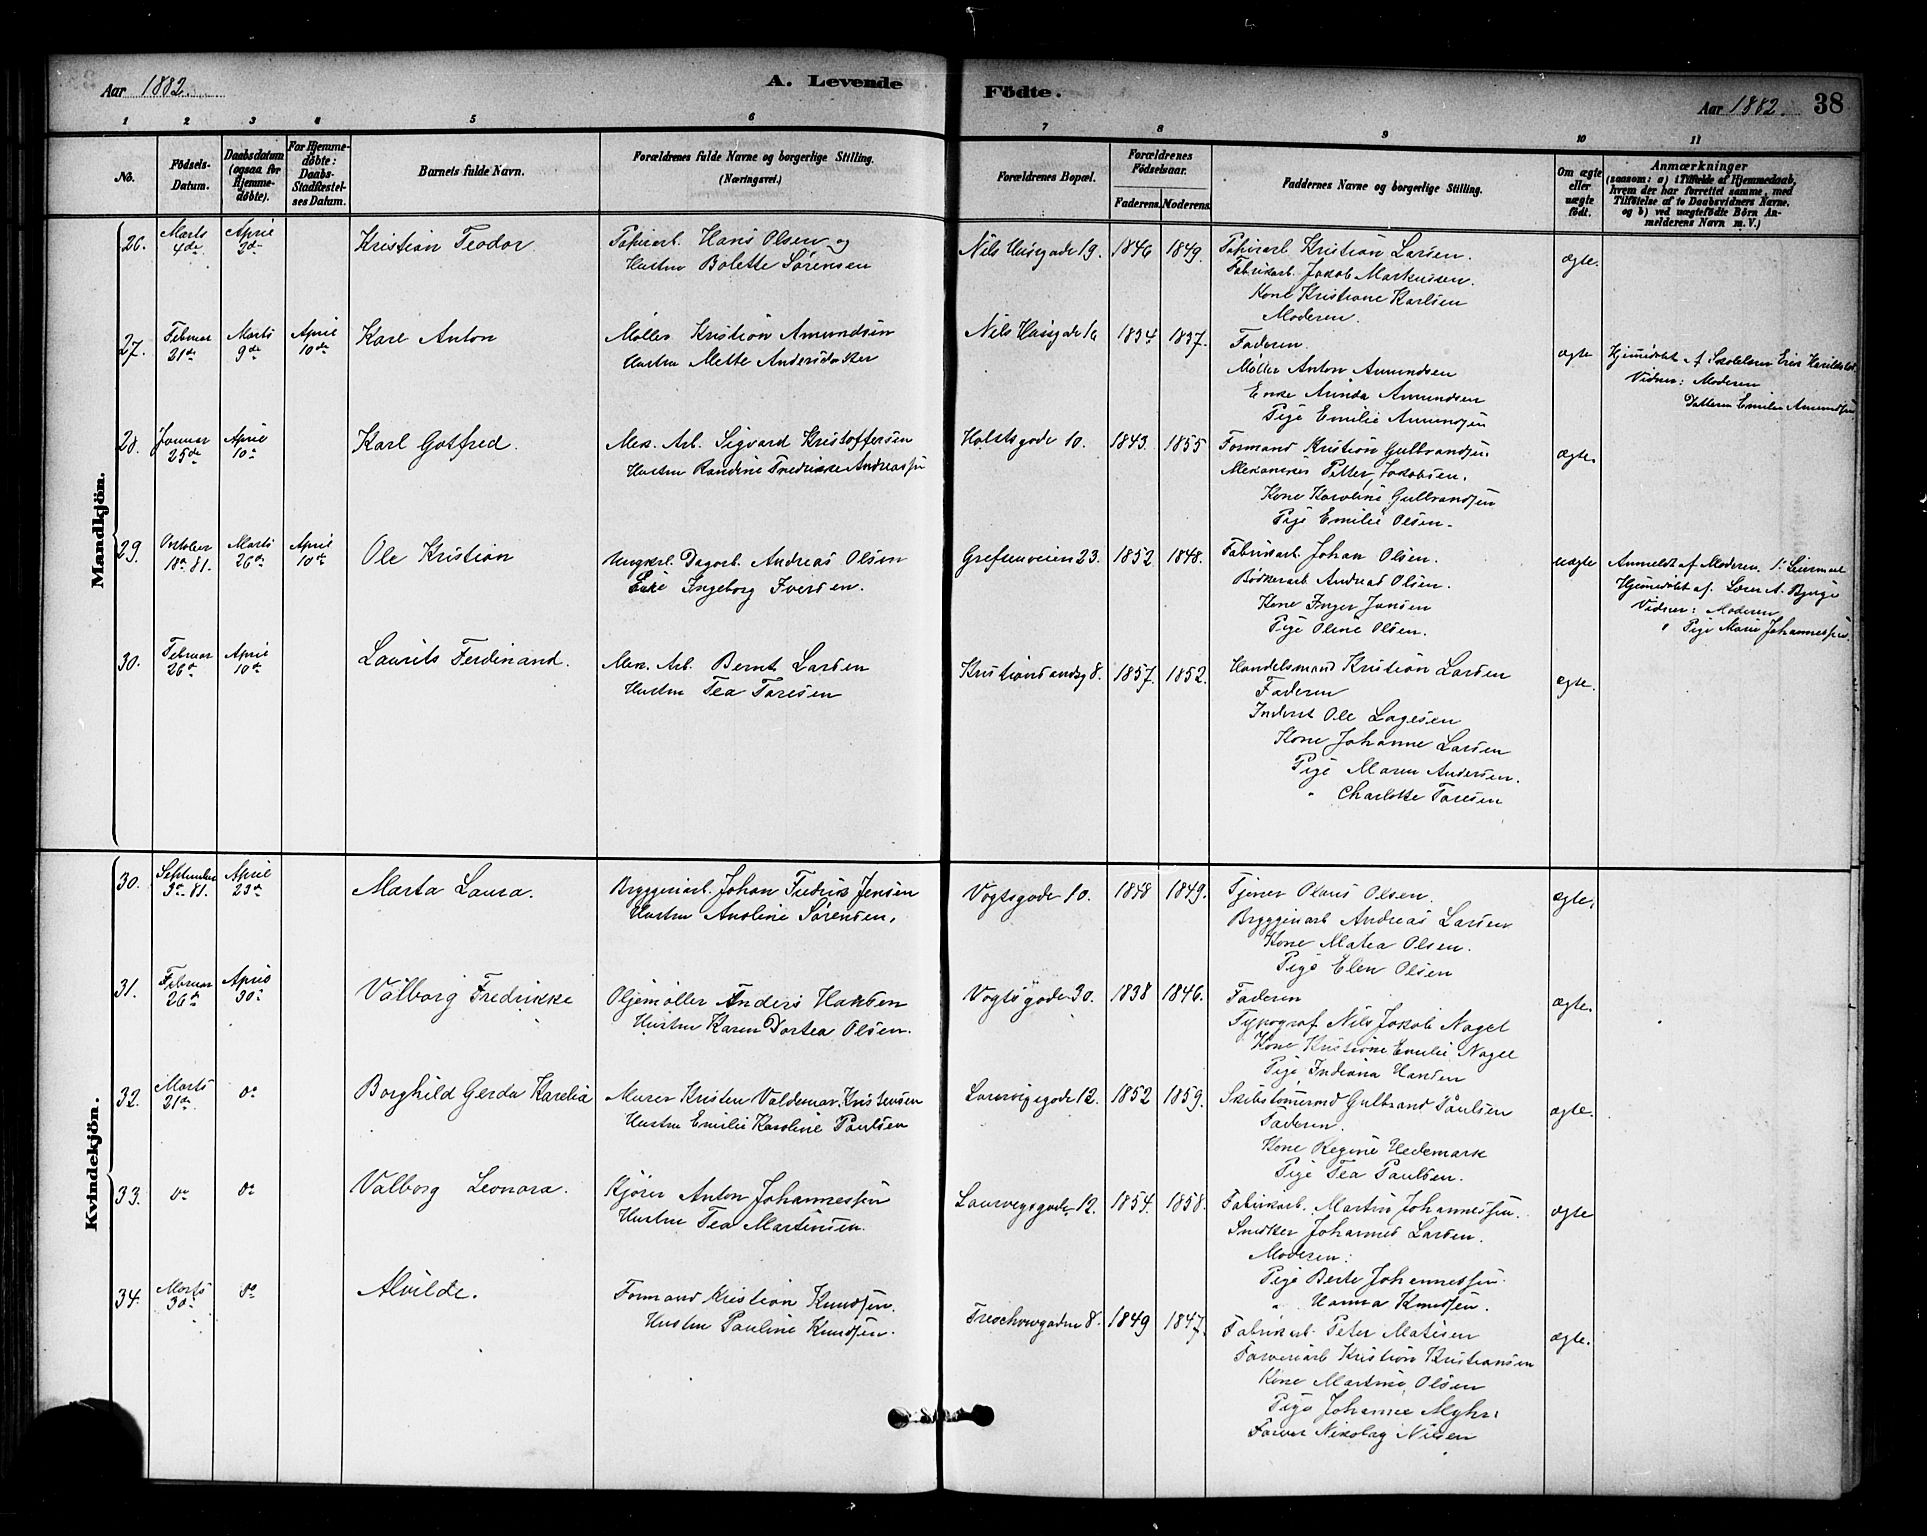 Aar 1882.
A. Levende
Födte.
Aar 1882.
38
1 2 3 4 5 6 7 8 9 10 11
No.
Födsels-Datum.
Daabsdatum (ogsaa for Hjemme-döbte).
For Hjemme-döbte: Daabs-Stadfæstel-ses Datum.
Barnets fulde Navn.
Forældrenes fulde Navne og borgerlige Stilling. (Næringsvei.)
Forældrenes Bopæl.
Forældrenes Födselsaar.
Faderens. Moderens.
Faddernes Navne og borgerlige Stilling.
Om ægte eller uægte födt.
Anmærkninger
(saasom: a) i Tilfælde af Hjemmedaab,
hvem der har forrettet samme, med
Tilföielse af to Daabsvidners Navne.
og b) ved uægtefödte Börn An-
melderens Navn m. V.)
Mandkjön.
26. Marts 4de April 2den Kristian Teodor
Papirarb. Hans Olsen og
Hustru Bolette Sørensen
Nils Husgade 19. 1846 1849.
Papirarb. Kristian Larsen.
Fabrikarb. Jakob Markussen.
Kone Kristiane Karlsen
Moderen.
ægte.
27. Februar 21de Marts 9de April 10de Karl Anton
Møller Kristian Amundsen
Hustru Mette Andersdatter
Nils Husgade 16 1834 1837.
Faderen.
Møller Anton Amundsen
Enke Arinda Amundsen
Pige Emilie Amundsen
ægte
Hjemmedøbt af Skolelærer
Vidner: Moderen
Datteren Emilie Amundsen
28. Januar 25de April 10de Karl Gotfred.
Mek. Arb. Sigvard Kristoffersen
Hustru Randine Fredrikke Andreassen
Holstsgade 10. 1843 1855
Formand Kristian Gulbrandsen
Mekanikus Petter Jakobsen.
Kone Karoline Gulbrandsen
Pige Emilie Olsen.
ægte.
29. Oktober 18de 81. Marts 26de April 10de Ole Kristian
Ungkarl Dagarb. Andreas Olsen
Ingeborg Iversen.
Grefsenveien 23. 1852 1848.
Fabrikarb. Johan Olsen.
Bødkerarb Andreas Olsen.
Kone Inger Jansen
Pige Oline Olsen.
uægte
Anmeldt af Moderen.
Hjemmedøbt af. Lærer A. Bjerge
Vidner: Moderen
" Pige Marie Johannessen.
30. Februar 26de April 10de Laurits Ferdinand.
Mek. Arb. Bernt Larsen
Hustru Tea Toresen
Kristiansandsg 8. 1857. 1852.
Handelsmand Kristian Larsen
Faderen
Inderst Ole Lagesen
Kone Johanne Larsen
Pige Maren Andersen.
" Charlotte Toresen
ægte.
Kvindekjön.
30. September 3de 81. April 23de Marta Laura.
Bryggeriarb. Johan Fredrik Jensen
Hustru Anoline Sørensen.
Vogtsgade 10. 1848 1849.
Tjener Olaus Olsen.
Bryggeriarb Andreas Larsen
Kone Matea Olsen.
Pige Elen Olsen
ægte.
31. Februar 26de April 30de Valborg Fredrikke
Oljemøller Anders Hansen
Hustru Karen Dortea Olsen.
Vogtsgade 30. 1838 1846.
Faderen
Typograf Nils Jakob Nagel
Kone Kristiane Emilie Nagel
Pige Indiana Hansen
ægte.
32. Marts 21de do Borghild Gerda Karelia
Murer Kristen Valdemar Kristensen
Hustru Emilie Karoline Paulsen
Laurvigsgade 12. 1852 1859.
Skibstømmermd Gulbrand Paulsen
Faderen.
Kone Regine Hedemark
Pige Tea Paulsen.
ægte.
33. do do Valborg Leonora.
Kjører Anton Johannessen
Hustru Tea Martinsen.
Laurvigsgade 12. 1854. 1858.
Fabrikarb. Martin Johannessen.
Snedker Johannes Larsen.
Moderen.
Pige Berte Johannessen
" Hanna Knudsen.
ægte
34. Marts 30de do Alvilde.
Formand Kristian Knudsen.
Hustru Pauline Knudsen.
Treschowsgaden 8. 1849 1847.
Fabrikarb. Peter Matisen
Farveriarb Kristian Kristiansen
Kone Martine Olsen
Pige Johanne Myhr.
Farver Nikolay Nilsen
ægte.